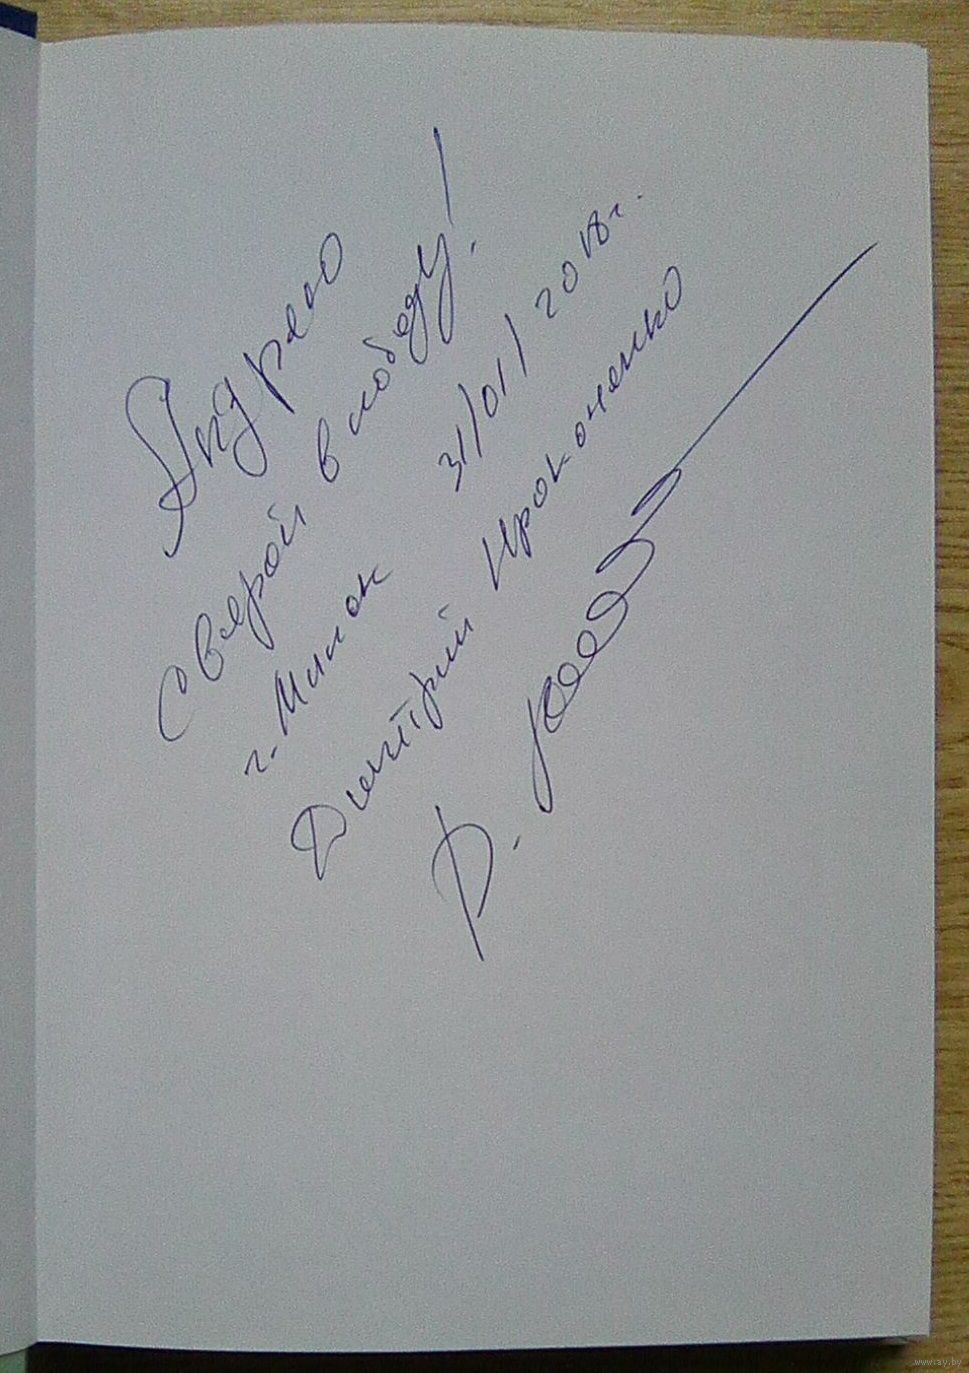 Андрею
с верой в победу!
г. Минск 31/01/2018г.
Дмитрий Прокопенко
Д.
www.ay.by